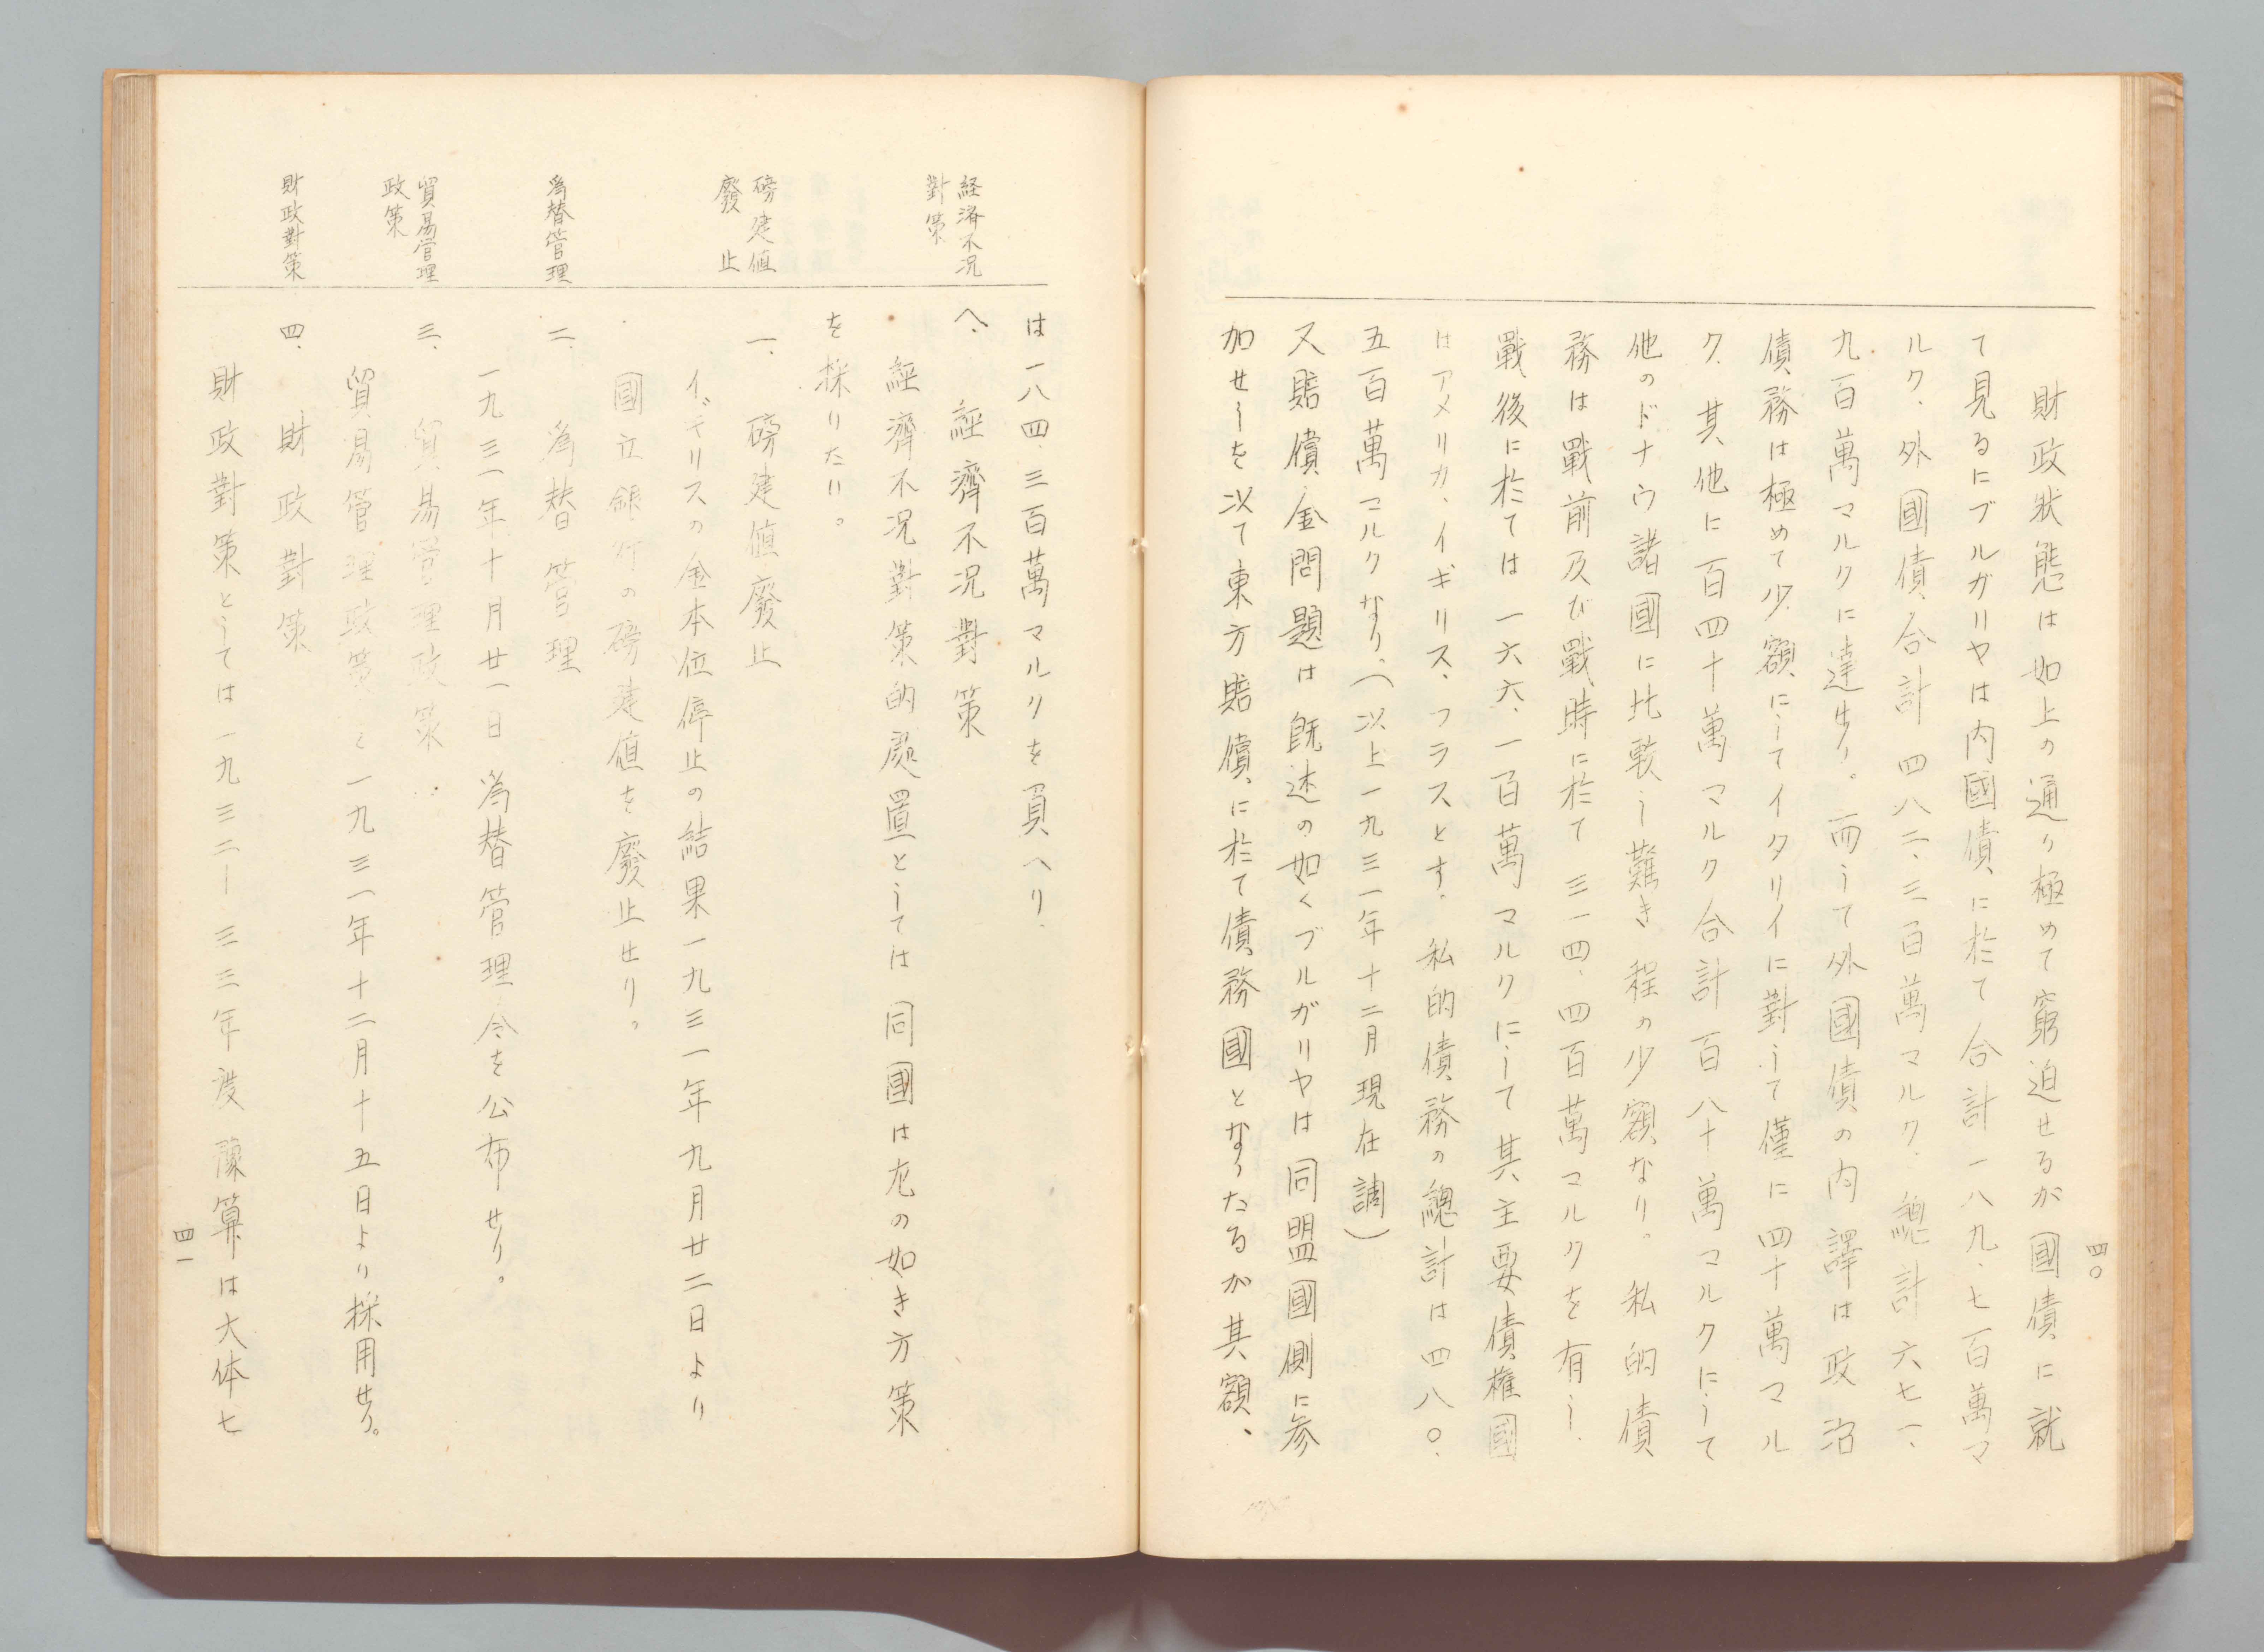 四〇
財政狀態は如上の通り極めて窮迫せるが國債に就
て見るにブルガリヤは内國債に於て合計一八九、七百萬マ
ルク、外國債合計四八二、三百萬マルク、總計六七一、
九百萬マルクに達せり。而して外國債の内譯は政治
債務は極めて少額にしてイタリイに對して僅に四十萬マル
ク、其他に百四十萬マルク合計百八十萬マルクにして
他のドナウ諸國に比較し難き程の少額なり。私的債
務は戰前及び戰時に於て三一四、四百萬マルクを有し、
戰後に於ては一六六、一百萬マルクにして其主要債權國
はアメリカ、イギリス、フラスとす。私的債務の總計は四八〇、
五百萬マルクなり、（以上一九三一年十二月現在調）
又賠償金問題は既述の如くブルガリヤは同盟國側に參
加せしを以て東方賠償に於て債務國となりたるが其額、
は一八四、三百萬マルクを負へり、
經済不況
對策
へ、經濟不況對策
經濟不況對策的處置としては同國は左の如き方策
を採りたり。
磅建値
廢止
一、磅建値廢止
イギリスの金本位停止の結果一九三一年九月廿二日より
國立銀行の磅建値を廢止せり。
爲替管理
二、爲替管理
一九三一年十月廿一日爲替管理令を公布せり。
貿易管理
政策
三、貿易管理政策
貿易管理政策を一九三一年十二月十五日より採用せり。
財政對策
四、財政對策
財政對策としては一九三二―三三年度豫算は大体七
四一